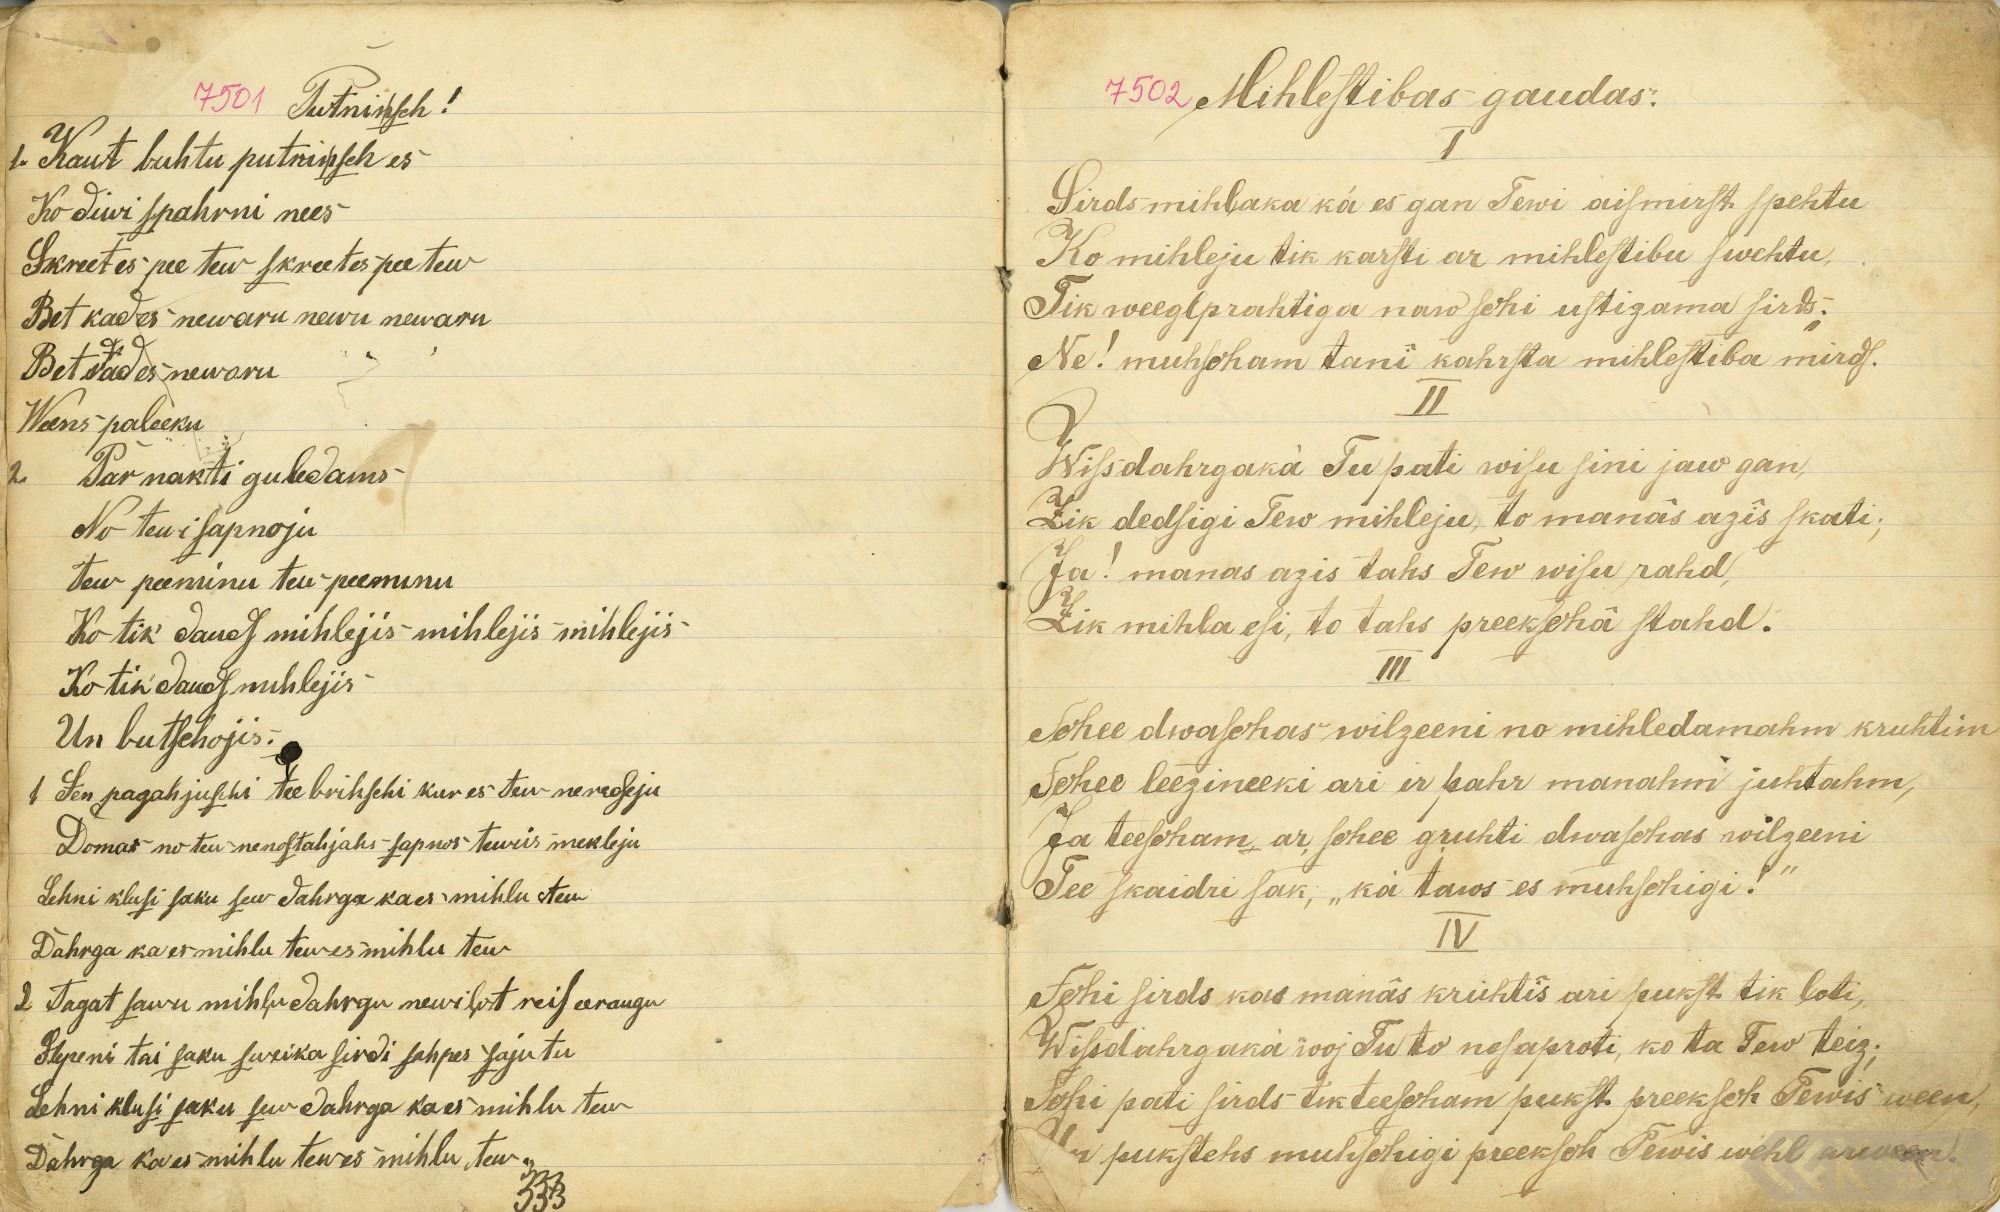 7501 Putninſch!
1. Kaut buhtu putninſch es
Ko diwi ſpahrni nees
Skreetes pee tew ſkreetes pee tew
Bet kades newaru newu newaru
Bet kades newaru
Weens paleeku
2. Par nakti guledams
No tewi ſapnoju
tew peeminu tew peeminu
Ko tik daudſ mihlejis mihlejis mihlejis
Ko tik daudſ mihlejis
Un butſchojis.
1 Sen pagahjuſchi tee brihſchi kur es tew neredſeju
Domas no tew nenoſtahjahs ſapnos tewiis mekleju
Lehni kluſi ſaku ſew dahrga ka es mihlu tew
Dahrga ka es mihlu tew es mihlu tew
2 Tagat ſawu mihlu dahrgu newilot reiſ eeraugu
Slepeni tai ſaku ſweika ſirdi ſahpes ſajutu
Lehni kluſi ſaku ſew dahrga ka es mihlu tew
Dahrga ka es mihlu tew es mihlu tew
333
7502 Mihleſtibas gaudas.
I
Sirdsmihļaka kà es gan Tewi aiſmirſt ſpehtu
Ko mihleju tik karſti ar mihleſtibu ſwehtu,
Tik weeglprahtiga naw ſchi uſtizama ſirds;
Ne! muhſcham tanî kahrſta mihleſtiba mirdſ.
II
Wiſsdahrgakà Tu pati wiſu ſini jaw gan,
Zik dedſigi Tew mihleju, to manâs azîs ſkati;
Ja! manas azis tahs Tew wiſu rahd,
Zik mihla eſi, to tahs preekſchâ ſtahd.
III
Schee dwaſchas wilzeeni no mihledamahm kruhtim
Schee leezineeki ari ir pahr manahm juhtahm,
Ja teeſcham ar ſchee gruhti dwaſchas wilzeeni
Tee ſkaidri ſak, „kà taws es muhſchigi!"
IV
Schi ſirds kas manâs kruhtîs ari pukſt tik loti,
Wiſsdahrgakà woj Tu to neſaproti, ko ta Tew teiz;
Schi pati ſirds tik teeſcham pukſt preekſch Tewis ween,
Un pukſtehs muhſchigi preekſch Tewis wehl arween.